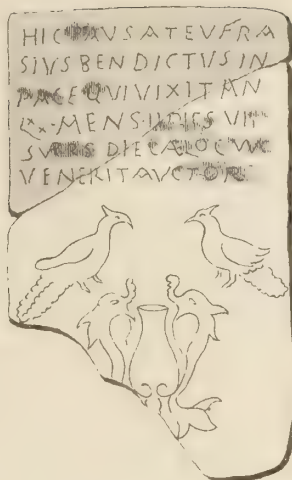 HIC PAVSAT EVFRA
SIVS BENDICTVS IN
PACE QVI VIXIT AN
LXX MENS II DIES VII
DIE
VENERIT AVCTOR